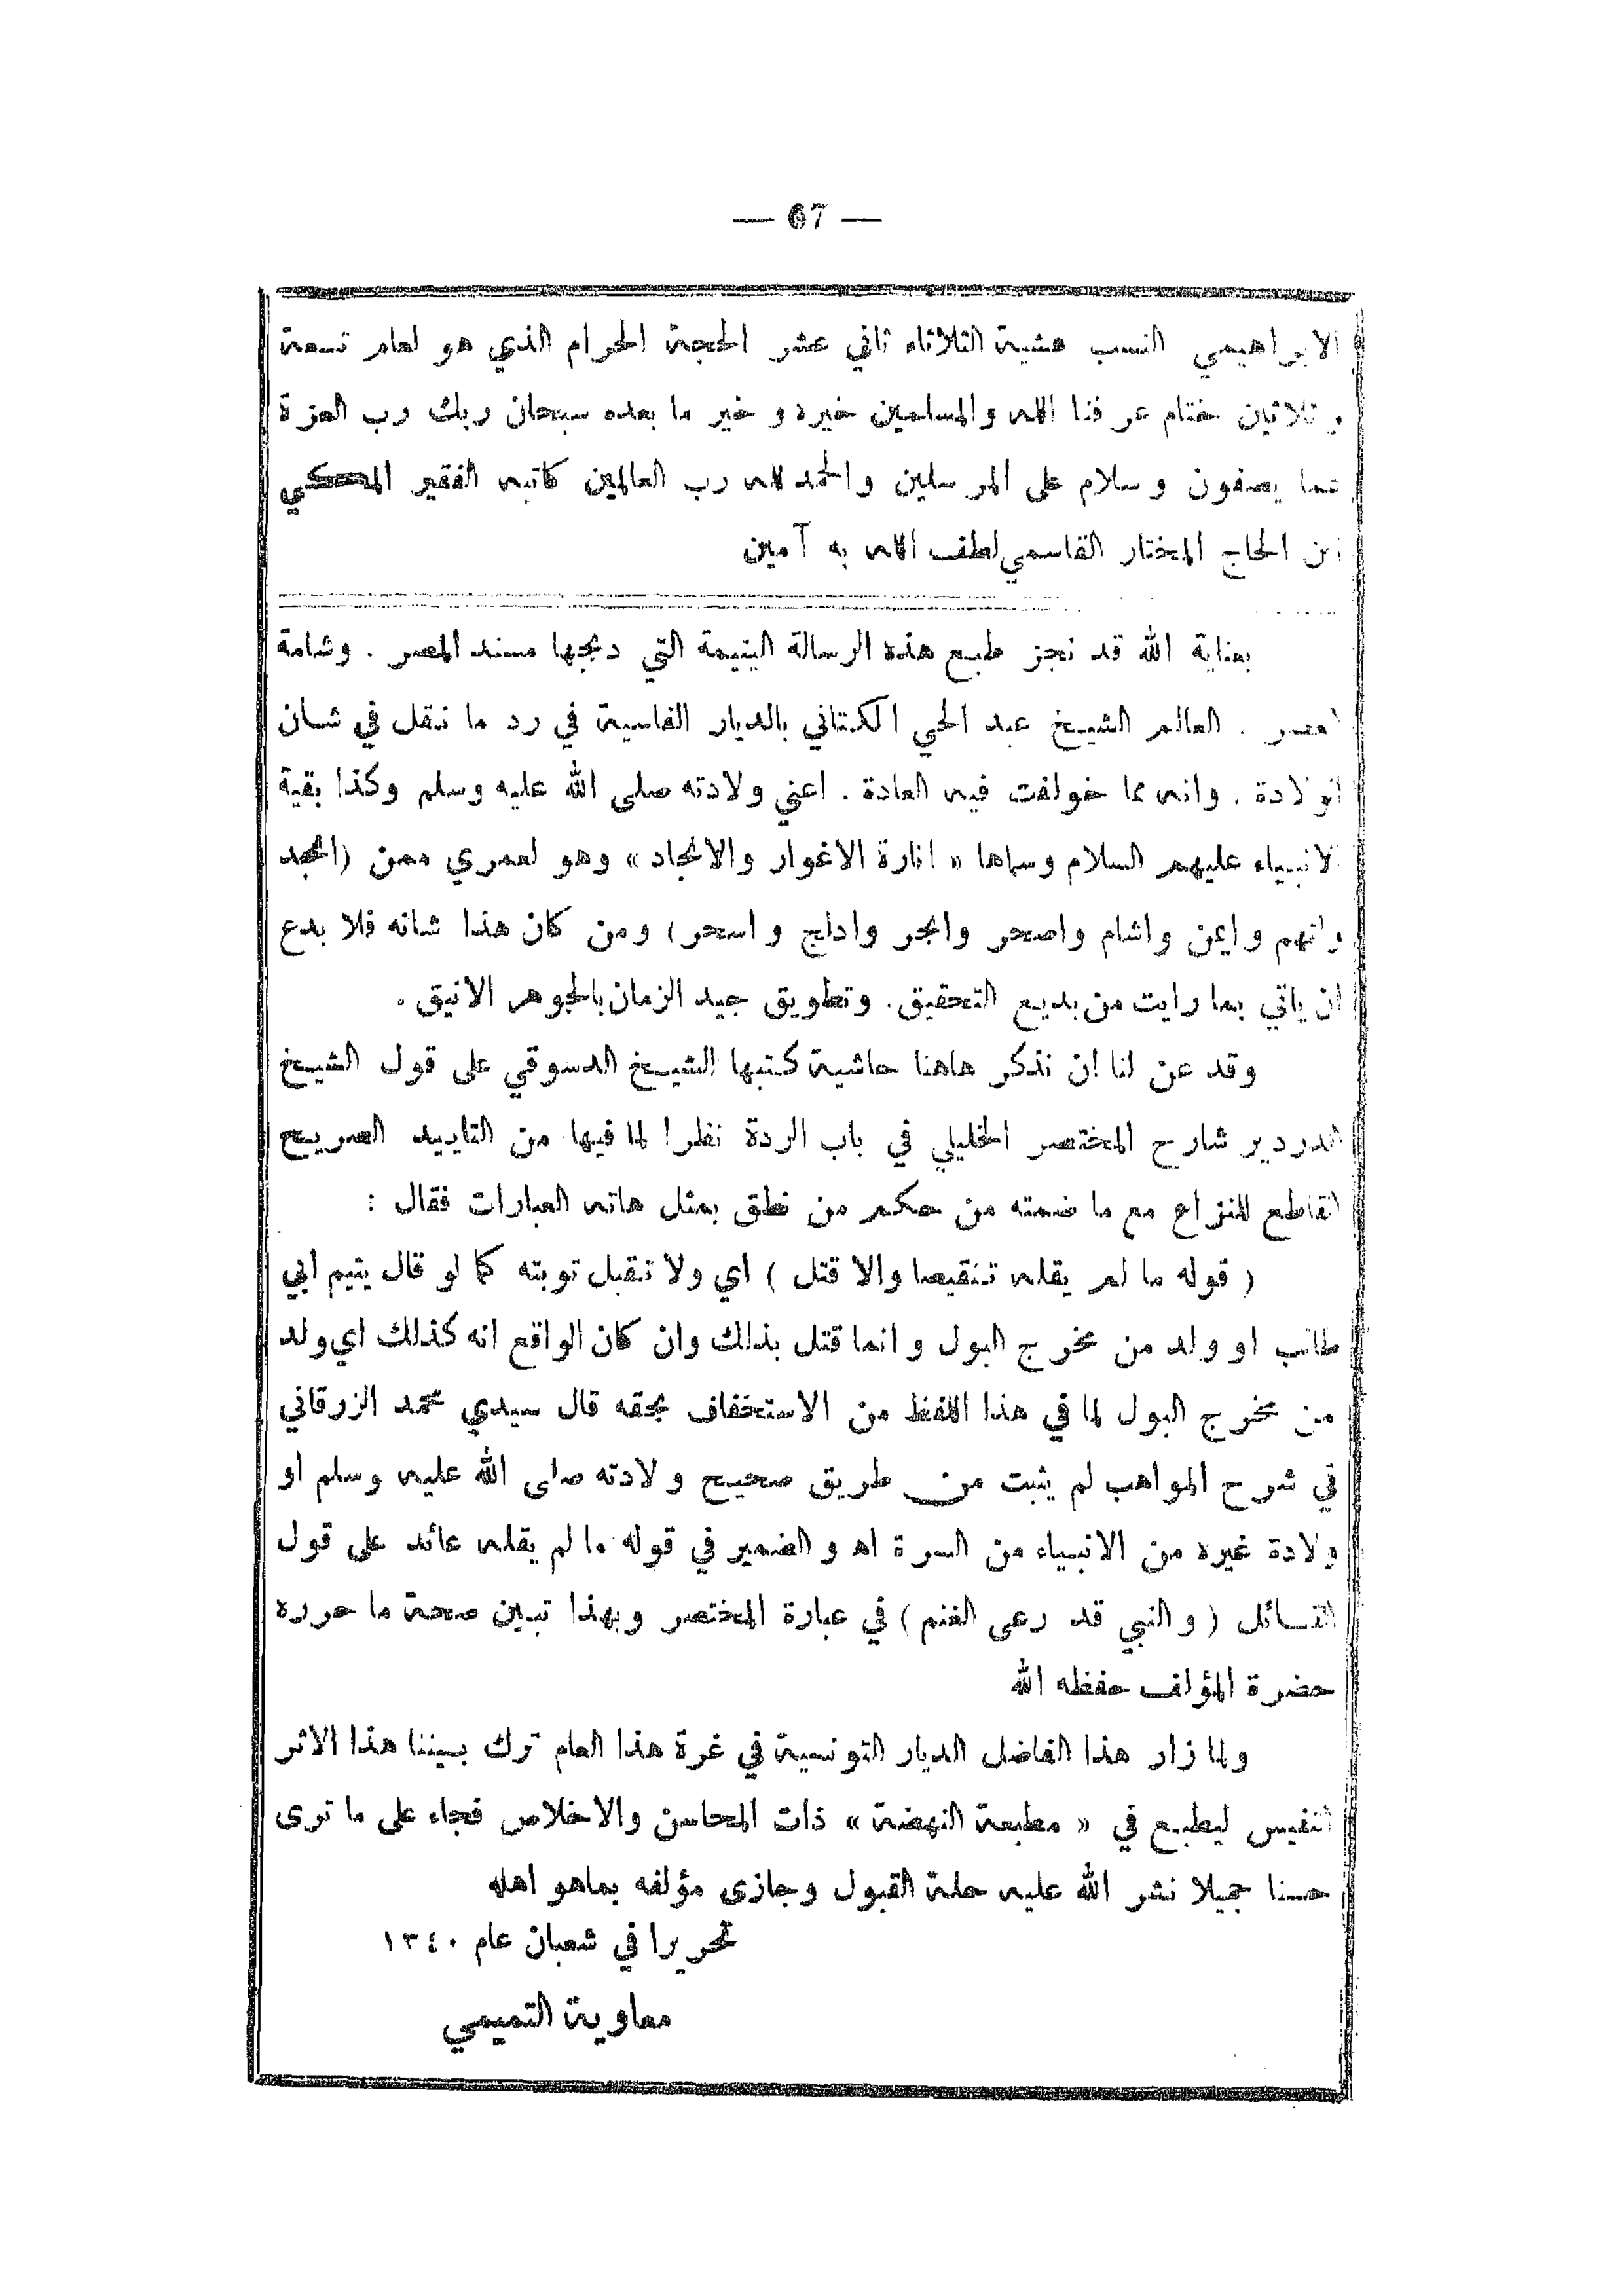 — 67 —
الابراهيمي النسب عشية الثلاثاء ثاني عشر الحجة الحرام الذي هو لعام تسعة
وثلاثين ختام عرفنا الله والمسلمين خيره وخير ما بعده سبحان ربك رب العزة
عما يصفون وسلام على المرسلين والحمد لله رب العالمين كاتبه الفقير المكي
ابن الحاج المختار القاسمي لطف الله به آمين
بعناية الله قد نجز طبع هذه الرسالة اليتيمة التي دبجها مسند العصر . وشامة
مصر . العالم الشيخ عبد الحي الكتاني بالديار الفاسية في رد ما نقل في شان
الولادة . وانه مما خولفت فيه العادة . اعني ولادته صلى الله عليه وسلم وكذا بقية
الانبياء عليهم السلام وسماها « انارة الاغوار والانجاد » وهو لعمري ممن (انجد
واتهم وايمن واشام واصحر وابحر وادلج واسحر) ومن كان هذا شانه فلا بدع
ان ياتي بما رايت من بديع التحقيق . وتطويق جيد الزمان بالجوهر الانيق .
وقد عن لنا ان نذكر هاهنا حاشية كتبها الشيخ الدسوقي على قول الشيخ
الدردير شارح المختصر الخليلي في باب الردة نظرا لما فيها من التاييد الصريح
القاطع للنزاع مع ما ضمته من حكم من نطق بمثل هاته العبارات فقال :
( قوله ما لم يقله تنقيصا والا قتل ) اي ولا تقبل توبته كما لو قال يتيم ابي
طالب او ولد من مخرج البول وانما قتل بذلك وان كان الواقع انه كذلك اي ولد
من مخرج البول لما في هذا اللفظ من الاستخفاف بحقه قال سيدي محمد الزرقاني
في شرح المواهب لم يثبت من طريق صحيح ولادته صلى الله عليه وسلم او
ولادة غيره من الانبياء من السرة اه والضمير في قوله ما لم يقله عائد على قول
القائل ( والنبي قد رعى الغنم ) في عبارة المختصر وبهذا تبين صحة ما حرره
حضرة المؤلف حفظه الله
ولما زار هذا الفاضل الديار التونسية في غرة هذا العام ترك بيننا هذا الاثر
النفيس ليطبع في « مطبعة النهضة » ذات المحاسن والاخلاص فجاء على ما ترى
حسنا جميلا نشر الله عليه حلة القبول وجازى مؤلفه بما هو اهله
تحريرا في شعبان عام ١٣٤٠
معاوية التميمي